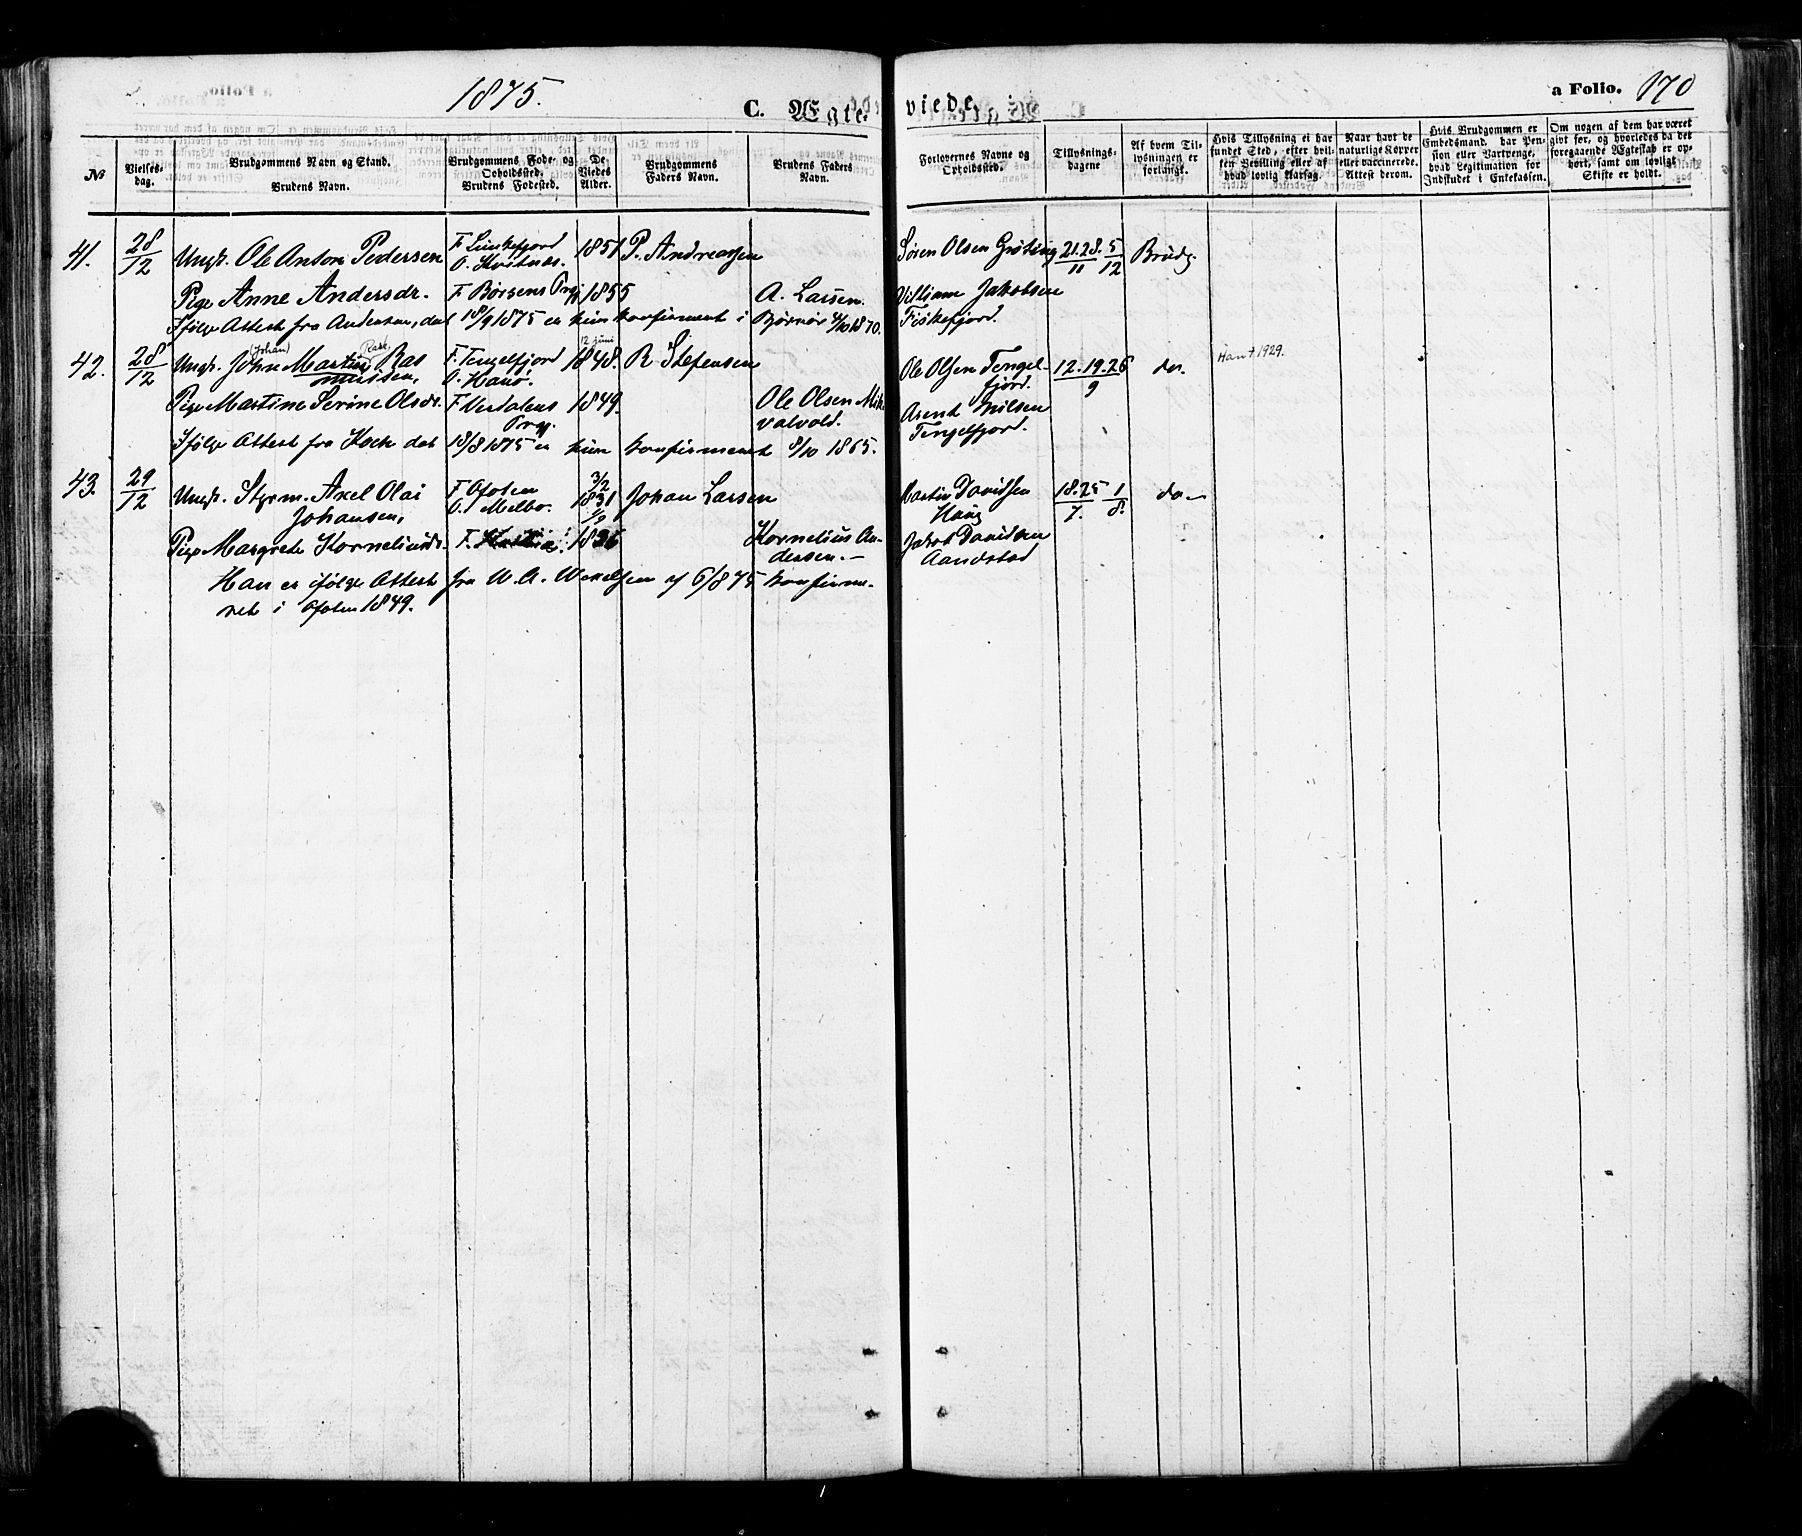 1875.
C. Ægteviede.
a Folio. 170
No
Vielses-dag.
Brudgommens Navn og Stand.
Brudens Navn.
Brudgommens Føde- og Opholdssted.
Brudens Fødested.
De Viedes Alder.
Brudgommens Faders Navn.
Brudens Faders Navn.
Forlovernes Navne og Opholdssted.
Tillysnings-dagene
Af hvem Tillysningen er forlangt.
Hvis Tillysning ei har fundet Sted, efter hvilken Bevilling eller af hvad lovlig Aarsag.
Naar havt de naturlige Kopper eller vaccinerede. Attest derom.
Hvis Brudgommen er Embedsmand, har Pension eller Vartpenge, hvad Legitimation for Indskudet i Enkekassen.
Om nogen af dem har været givt før, og hvorledes da det foregaaende Ægteskab er ophørt, samt om lovligt Skifte er holdt.
41. 28/12 Ungk. Ole Anton Pedersen F. O. 1851 P. Andreassen Søren Olsen Grøting 21.28./11 5/12 Brudg.
Pige Anne Andersdr. F. Børsens Prgj 1855 A. Larsen. Villiam Jakobsen
Ifølge Attest fra Andersen, dat 18/9 1875 er hun konfirmeret i Bjørnør 4/10 1870. Fiskefjord.
(Johan) Rask 12 juni
42. 28/12 Ungk. John Martin Ras F. Tengelfjord 1848. R Stefensen Ole Olsen Tengel- 12.19.26/9 do. Han † 1929.
mussen, O. Hanø. fjord.
Pige Martine Serine Olsdr. F. Verdalens 1849. Ole Olsen Mik Arent Nilsen
Prgj. valvold. Tengelfjord.
Ifølge Attest fra Kock dat 18/8 1875 er hun konfirmeret 8/10 1865.
43. 29/12 Ungk. Styrm. Axel Olai F. Ofoten 3/2 1831 Johan Larsen Martin Davidsen 18.25/7. 1/8. do
Johansen, O. Melbo. Haug
Pige Margrete Korneliusdr. F. 1836 Kornelius An- Jakob Davidsen
dersen.— Aandstad
Han er ifølge Attest fra W. A. Wexelsen af 6/8 75 konfirme-
ret i Ofoten 1849.